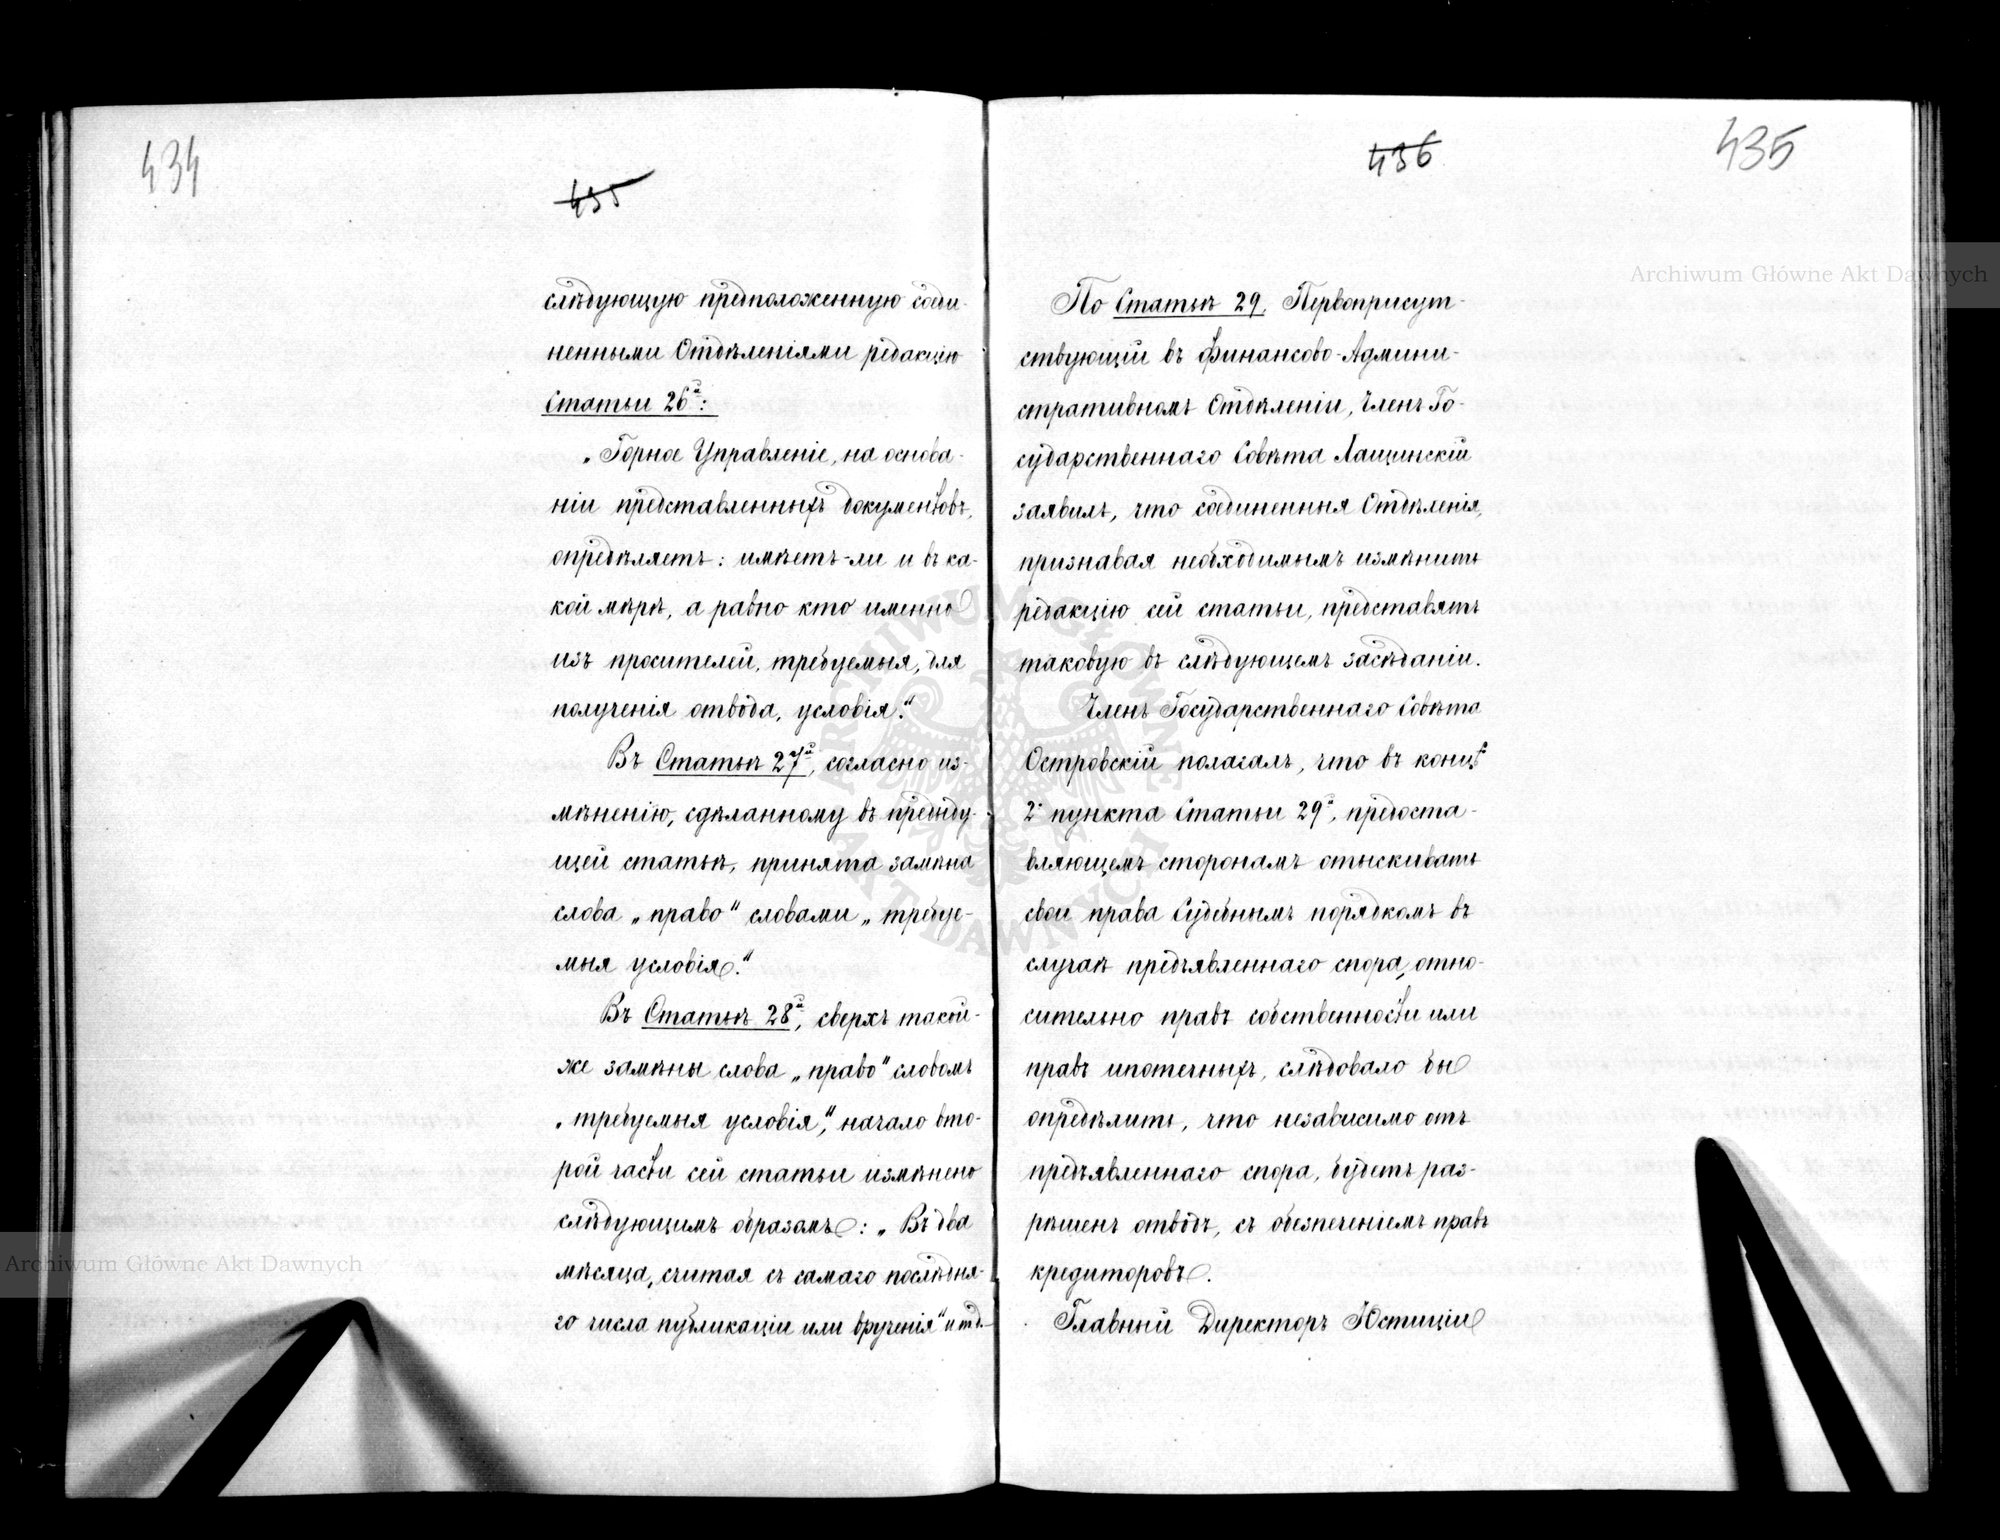 434
435
слѣдующую предположенную соеди-
ненными Отдѣленіями редакцію
Статьи 26й:
„Горное Управленіе, на основа-
ніи представленныхъ документовъ,
опредѣляетъ: имѣетъ-ли и въ ка-
кой мѣрѣ, а равно кто именно
изъ просителей, требуемыя, для
полученія отвода, условія."
Въ Статьѣ 27й, согласно из-
мѣненію, сдѣланному въ предъиду-
щей статьѣ, принята замѣна
слова „право" словами „требуе-
мыя условія."
Въ Статьѣ 28й, сверхъ такой-
же замѣны слова „право" словомъ
„требуемыя условія", начало вто-
рой части сей статьи измѣнено
слѣдующимъ образомъ: „Въ два
мѣсяца, считая съ самаго послѣдня-
го числа публикаціи или врученія" и тд.
436
435
По Статьѣ 29. Первоприсут-
ствующій въ Финансово-Админи-
стративномъ Отдѣленіи, Членъ Го-
сударственнаго Совѣта Лащинскій
заявилъ, что соединенныя Отдѣленія,
признавая необходимымъ измѣнить
редакцію сей статьи, представятъ
таковую въ слѣдующемъ засѣданіи.
Членъ Государственнаго Совѣта
Островскій полагалъ, что въ концѣ
2 пункта Статьи 29й, предоста-
вляющемъ сторонамъ отыскивать
свои права Судебнымъ порядкомъ въ
случаѣ предъявленнаго спора, отно-
сительно правъ собственности или
правъ ипотечныхъ, слѣдовало бы
опредѣлить, что независимо отъ
предъявленнаго спора, будетъ раз-
рѣшенъ отводъ, съ обезпеченіемъ правъ
кредиторовъ.
Главный Директоръ Юстиціи
Archiwum Główne Akt Dawnych
Archiwum Główne Akt Dawnych
ARCHIWUM GŁÓWNE AKT DAWNYCH